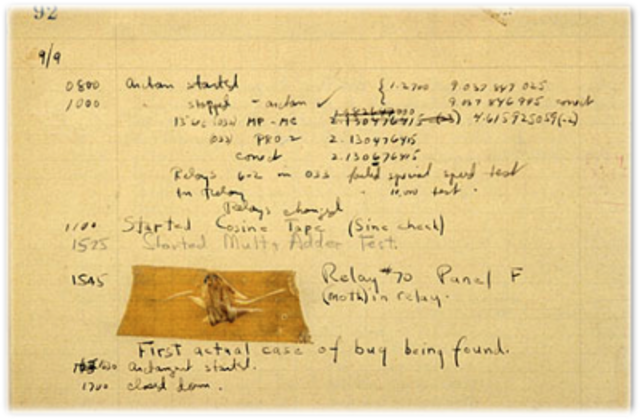 92
9/9
0800 Antan started { 1.2700 9.037 847 025
1000 " stopped - antan ✓ 9.037 846 995 correct
13" MP - MC 2.130476415 (-3) 4.615925059(-2)
(033) PRO 2 2.130476415
correct 2.130676415
Relays 6-2 in 033 failed special speed test
in relay " 10.000 test.
Relays changed
1100 Started Cosine Tape (Sine check)
1525 Started Mult+ Adder Test.
1545 Relay #70 Panel F
(moth) in relay.
First actual case of bug being found.
1630 antangent started.
1700 closed down.